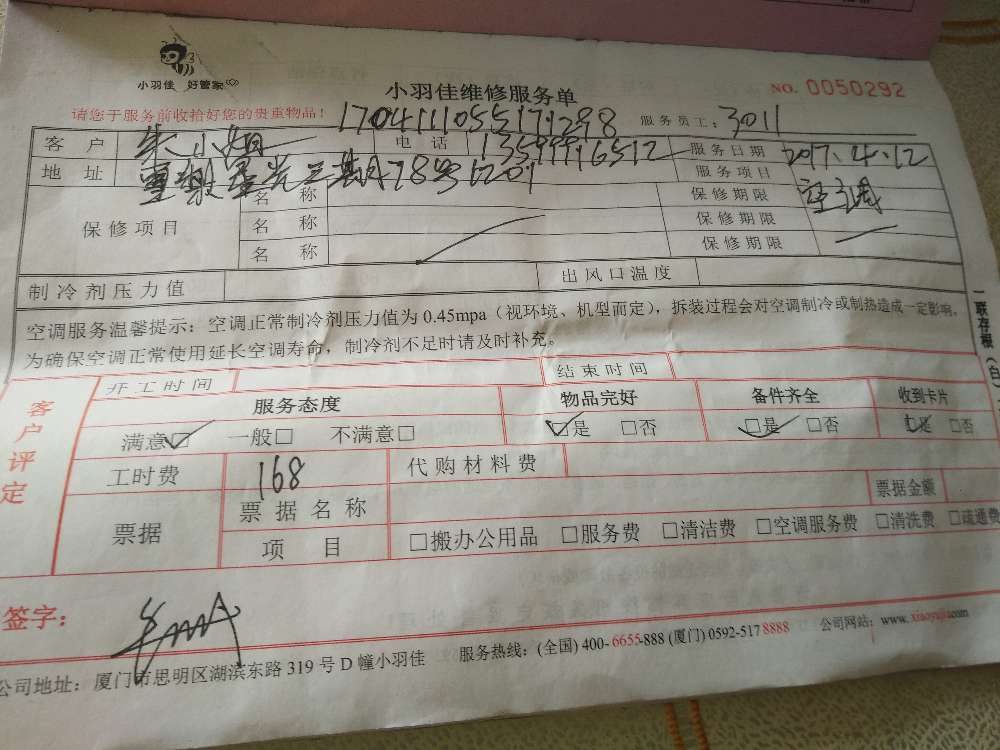 小羽佳 好管家
小羽佳维修服务单
NO. 0050292
请您于服务前收拾好您的贵重物品！
服务员工： 3011
客户 朱小姐 电话 服务日期 2017.4.12
地址 服务项目 空调
保修项目 名称 保修期限
名称 保修期限
名称 保修期限
制冷剂压力值 出风口温度
空调服务温馨提示：空调正常制冷剂压力值为 0.45mpa（视环境、机型而定），拆装过程会对空调制冷或制热造成一定影响。
为确保空调正常使用延长空调寿命，制冷剂不足时请及时补充。
一联存根（白）
客户评定
开工时间 结束时间
服务态度 物品完好 备件齐全 收到卡片
满意□ 一般□ 不满意□ □是 □否 □是 □否 □是 □否
工时费 168 代购材料费
票据 票据名称 票据金额
项目 □搬办公用品 □服务费 □清洁费 □空调服务费 □清洗费 □疏通费
签字：
公司地址：厦门市思明区湖滨东路 319 号 D 幢小羽佳 服务热线：(全国) 400-6655-888 (厦门) 0592-5178888 公司网站：www.xiaoyujia.com